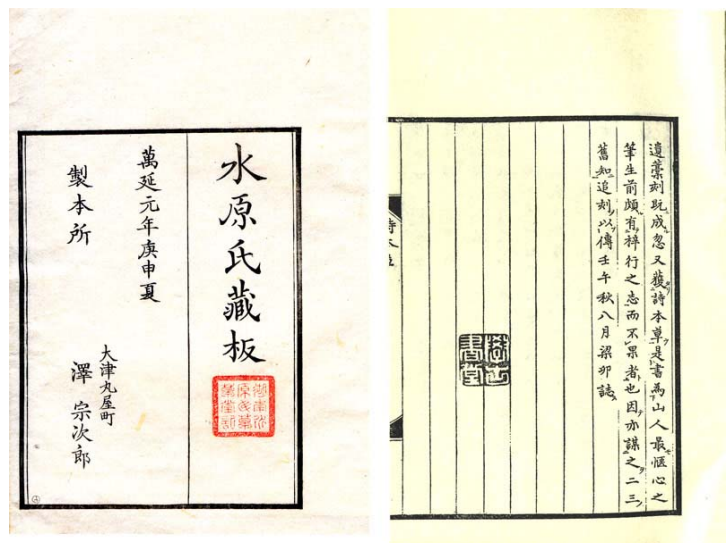 水原氏藏板
萬延元年庚申夏
製本所
大津丸屋町
澤 宗次郎
遺藁刻既成忽又獲詩本草是書爲山人最愜心之
筆生前頗有梓行之志而不果者也因亦謀之二三
舊知追刻以傳壬午秋八月梁卯誌